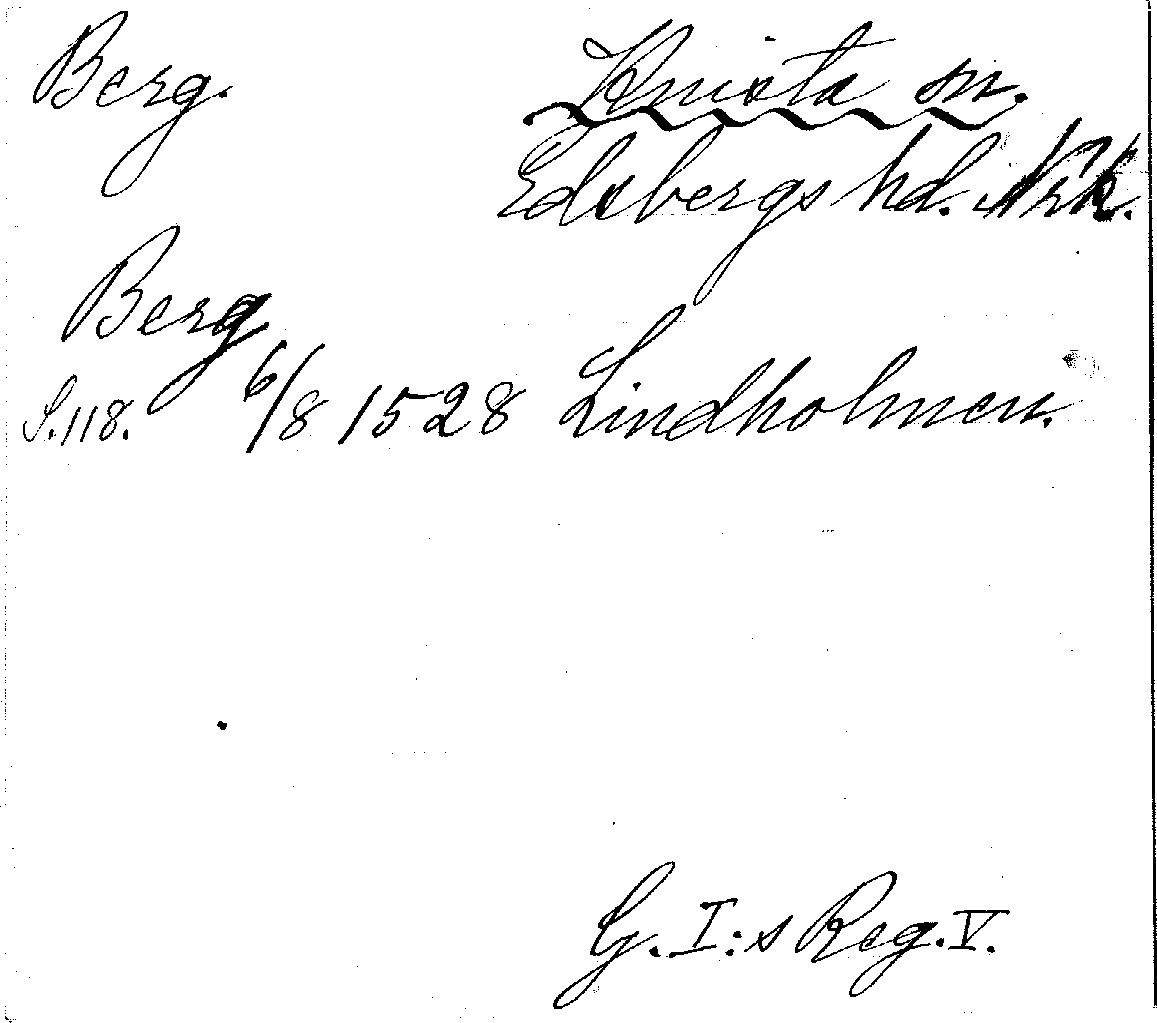 Berg. Knista sn.
Edsbergs hd. Nrk.
Berg
S. 118. 6/8 1528 Lindholmen.
G. I:s Reg. V.